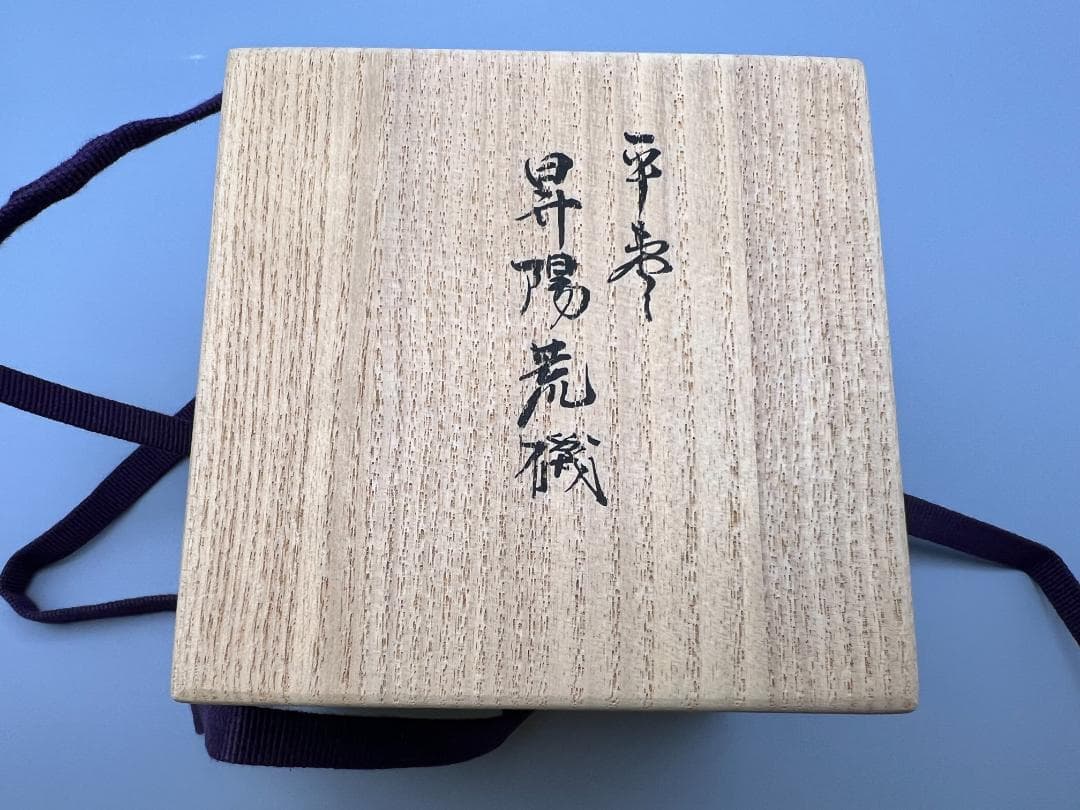 平棗
昇陽荒磯